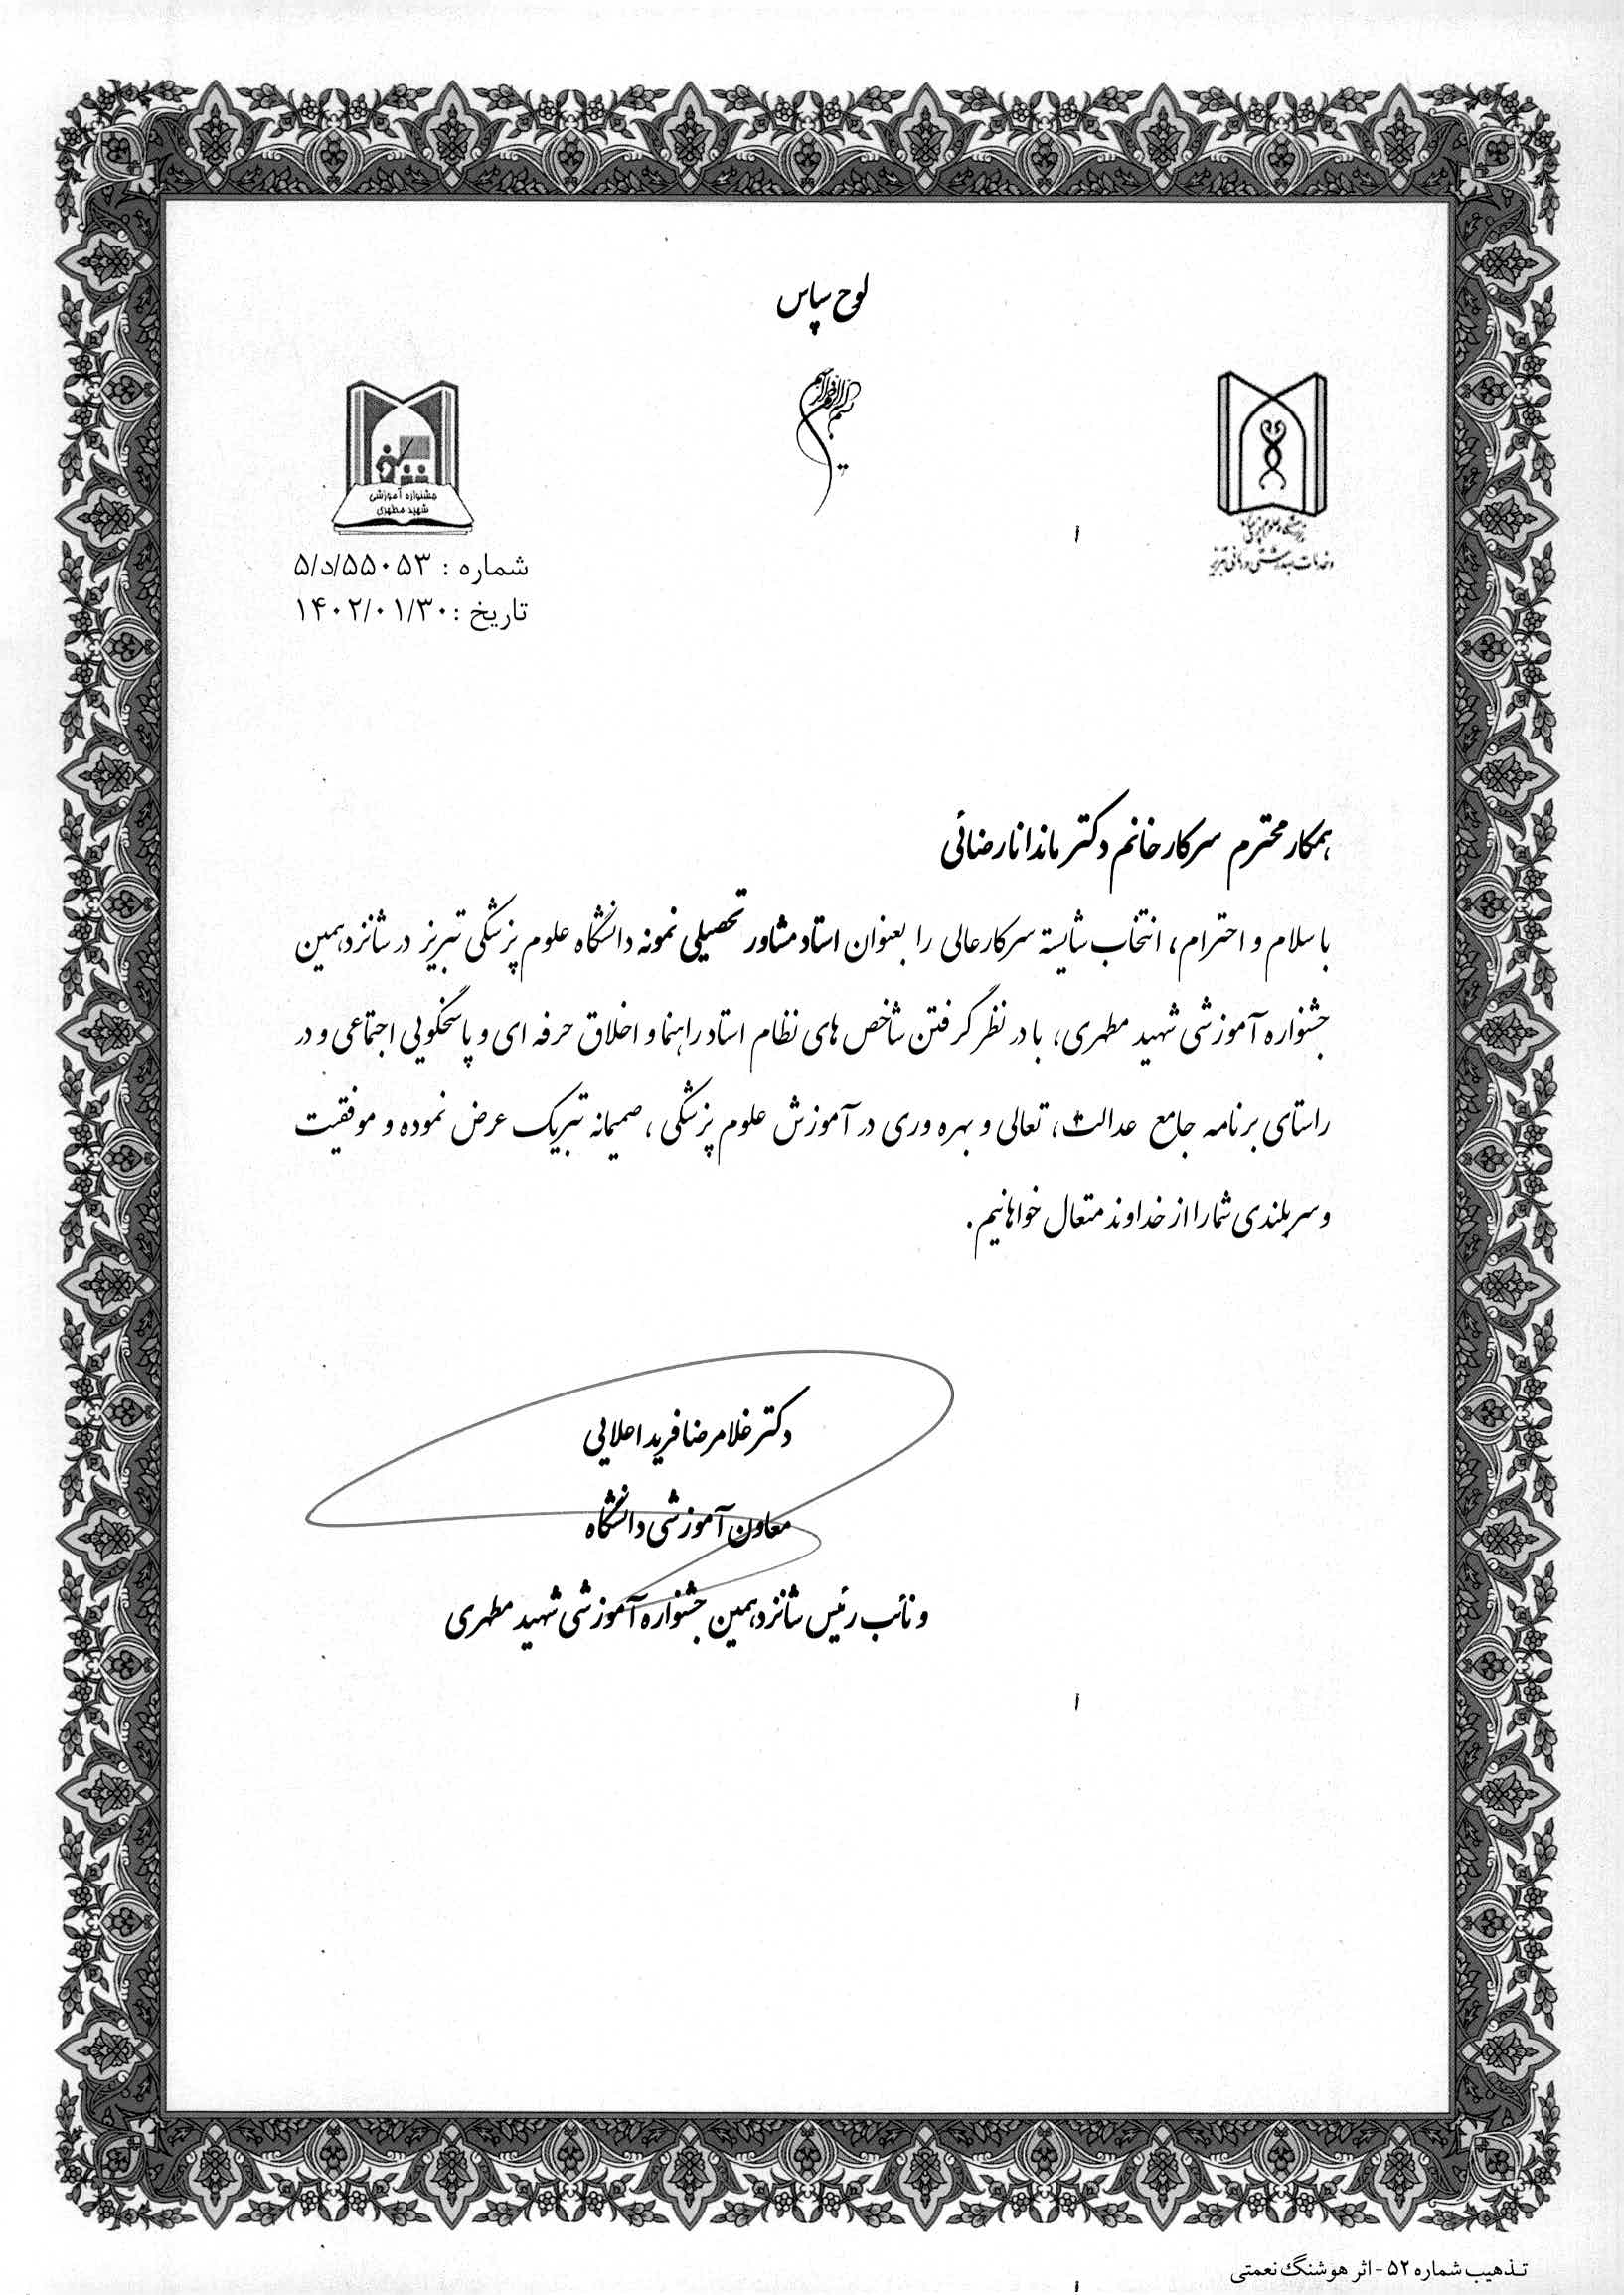 لوح سپاس
بسم الله الرحمن الرحیم
دانشگاه علوم پزشکی
و خدمات بهداشتی درمانی تبریز
جشنواره آموزشی
شهید مطهری
شماره : ۵۵۰۵۳/د/۵
تاریخ : ۱۴۰۲/۰۱/۳۰
همکار محترم سرکار خانم دکتر ماندانا رضائی
با سلام و احترام، انتخاب شایسته سرکارعالی را بعنوان استاد مشاور تحصیلی نمونه دانشگاه علوم پزشکی تبریز در شانزدهمین
جشنواره آموزشی شهید مطهری، با در نظر گرفتن شاخص های نظام استاد راهنما و اخلاق حرفه ای و پاسخگویی اجتماعی و در
راستای برنامه جامع عدالت، تعالی و بهره وری در آموزش علوم پزشکی ، صمیمانه تبریک عرض نموده و موفقیت
و سربلندی شما را از خداوند متعال خواهانیم.
دکتر غلامرضا فرید اعلایی
معاون آموزشی دانشگاه
و نائب رئیس شانزدهمین جشنواره آموزشی شهید مطهری
تـذهیب شماره ۵۲ - اثر هوشنگ نعمتی